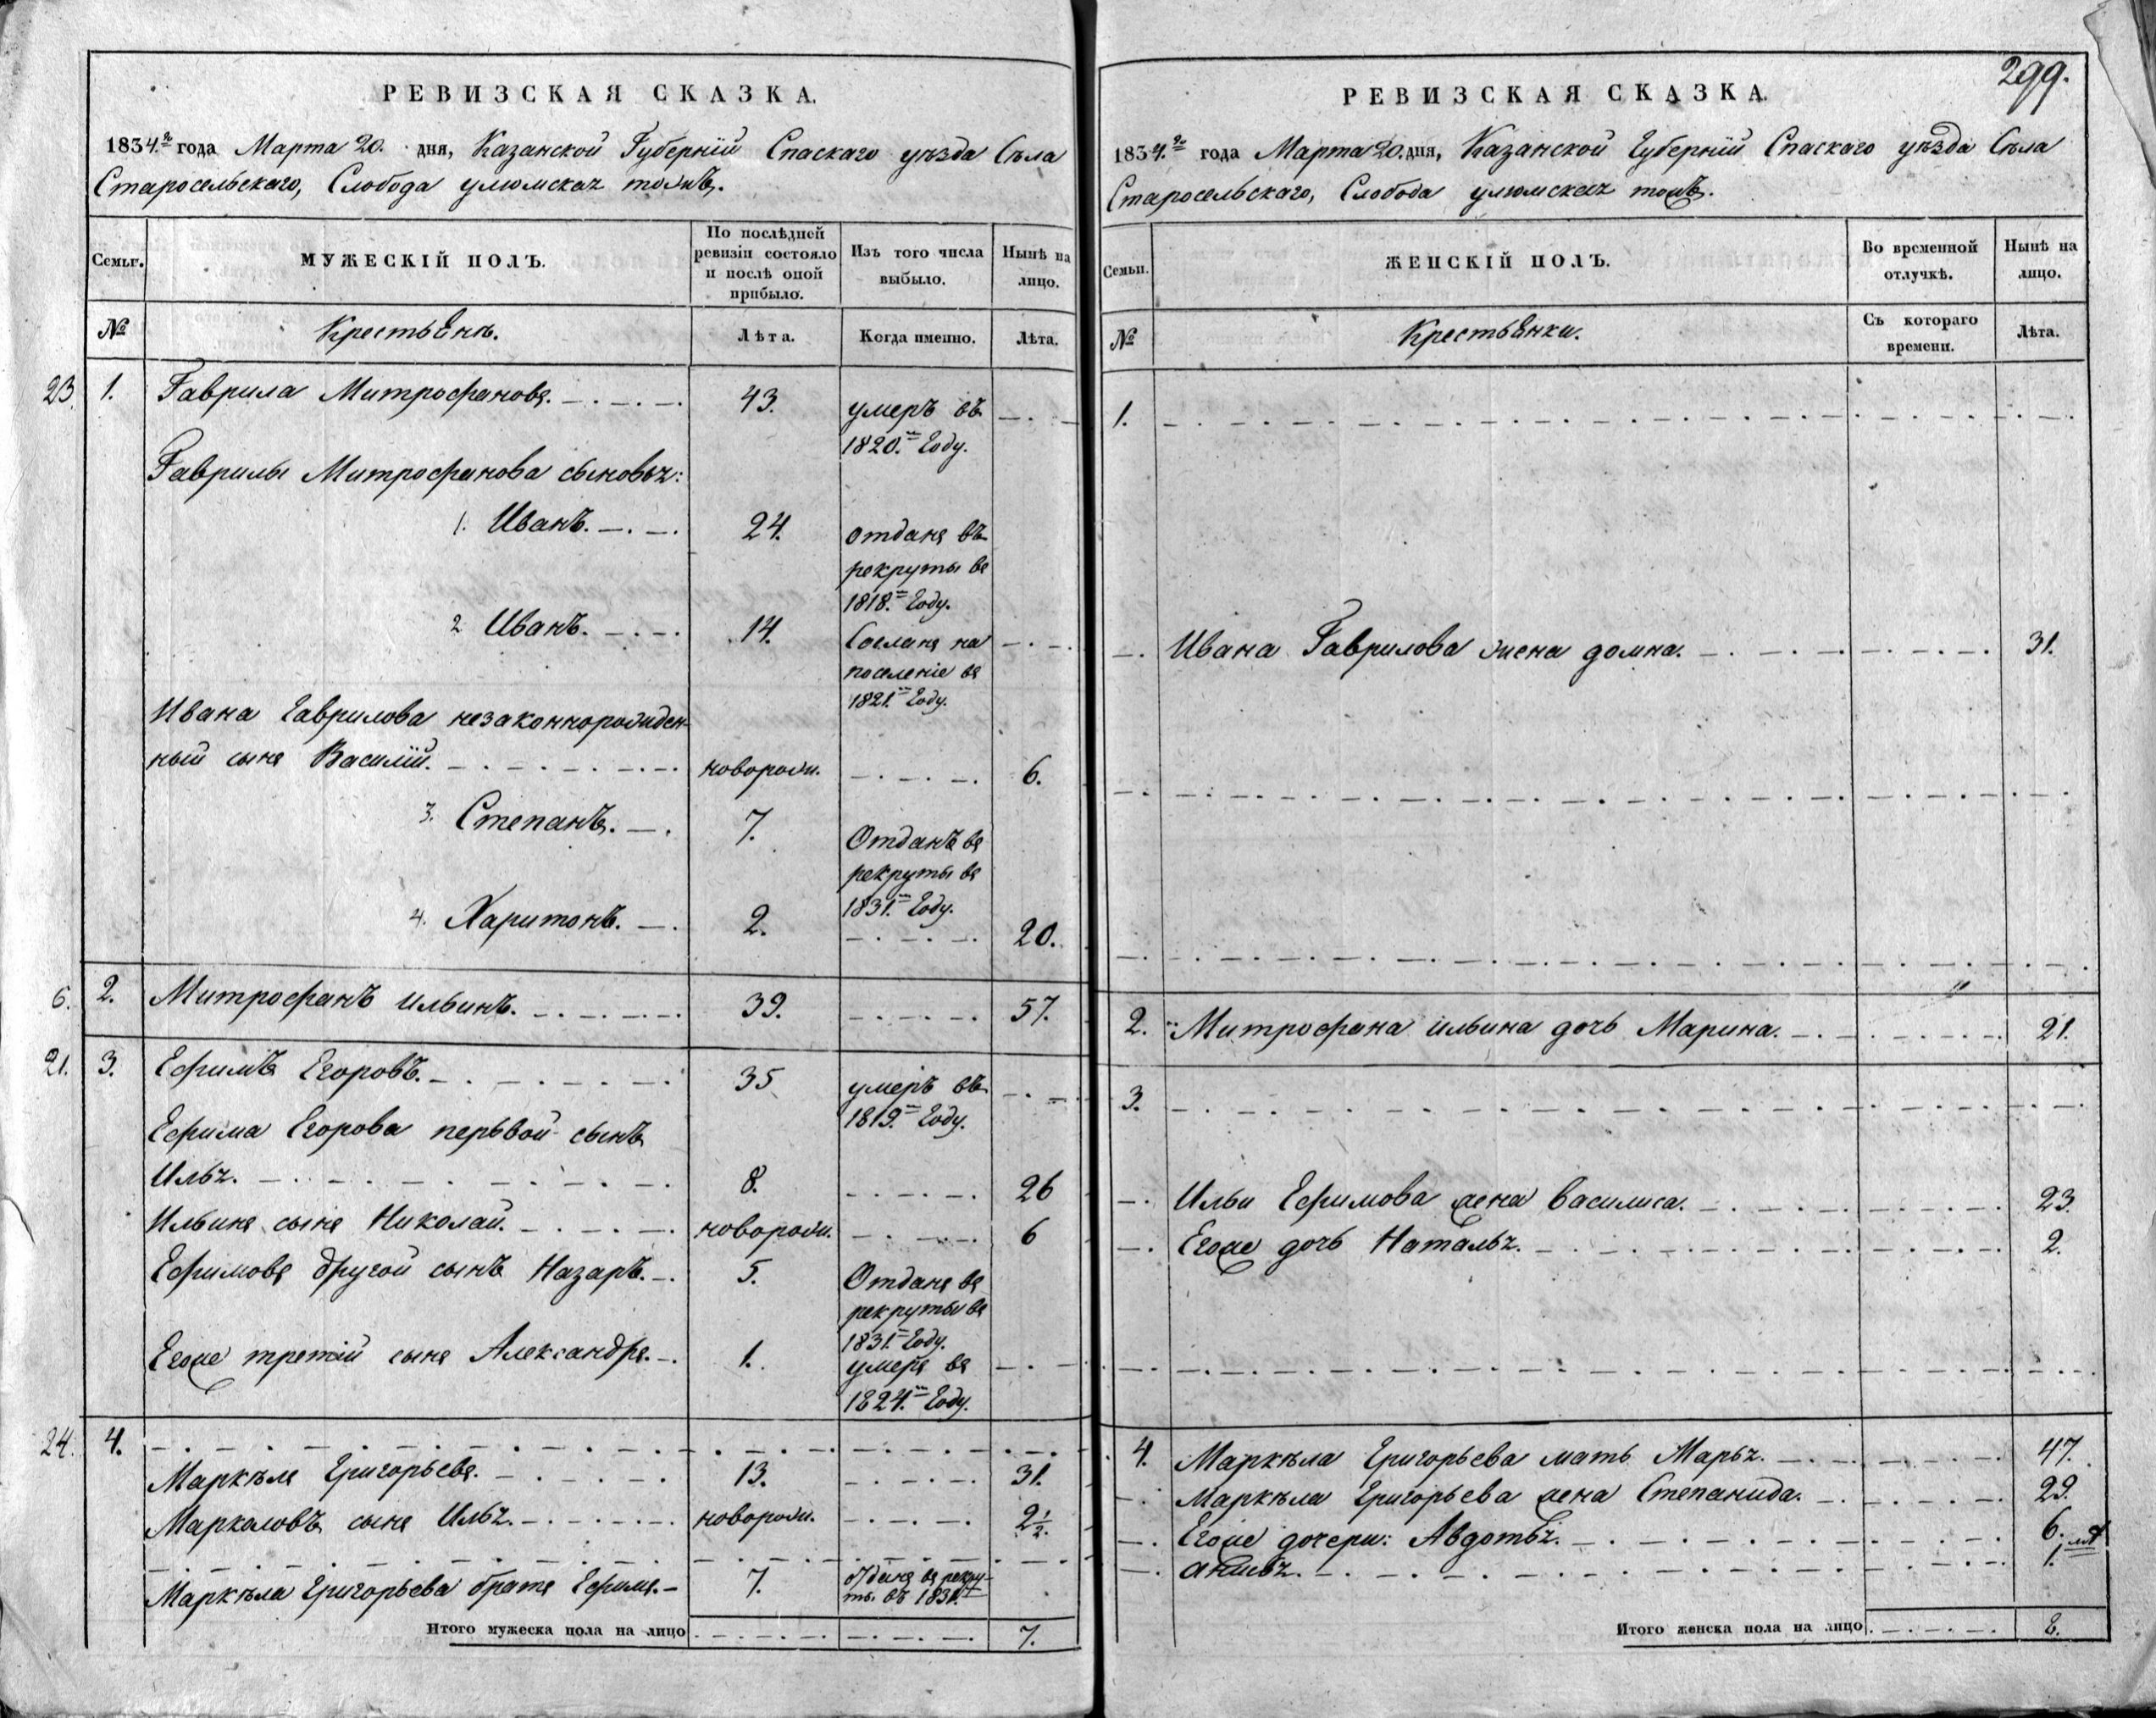 РЕВИЗСКАЯ СКАЗКА.
1834.го года Марта 20. дня, Казанской Губерніи Спаскаго уѣзда Села
Старосельскаго, Слобода
МУЖЕСКІЙ ПОЛЪ.
Семьи.
По послѣдней
ревизіи состояло
и послѣ оной
прибыло.
Изъ того числа
выбыло.
Нынѣ на
лицо.
№
Крестьяня.
Лѣта.
Когда именно.
Лѣта.
23. 1. Гаврила Митрофановъ. 43. умеръ въ
1820.м Году.
Гаврилы Митрофанова сыновья:
1. Иванъ. 24. отданъ въ
рекруты въ
1818.м Году.
2 Иванъ. 14. Сосланъ на
поселеніе въ
1821.м Году.
Ивана Гаврилова незаконнорожден-
ный сынъ Василій. новорож. 6.
3. Степанъ. 7. Отданъ въ
рекруты въ
1831.м Году.
4. Харитонъ. 2. 20.
6. 2. Митрофанъ Ильинъ. 39. 57.
21. 3. Ефимъ Егоровъ. 35 умеръ въ
1819.м Году.
Ефима Егорова первой сынъ
Илья. 8. 26
Ильинъ сынъ Николай. новорож. 6
Ефимовъ другой сынъ Назаръ. 5. Отданъ въ
рекруты въ
1831.м Году.
Егоже третій сынъ Александръ. 1. умеръ въ
1824.м Году.
24. 4.
Маркелъ Григорьевъ. 13. 31.
Маркеловъ сынъ Илья. новорож. 2½.
Маркѣла Григорьева братъ Ефимъ. 7. отданъ въ рекру-
ты. въ
Итого мужеска пола на лицо 7.
299.
РЕВИЗСКАЯ СКАЗКА.
1834.го года Марта 20. дня, Казанской Губерніи Спаскаго уѣзда Села
Старосельскаго, Слобода
Семьи.
ЖЕНСКІЙ ПОЛЪ.
Во временной
отлучкѣ.
Нынѣ на
лицо.
№
Крестьянки.
Съ котораго
времени.
Лѣта.
1.
Ивана Гаврилова жена домна. 31.
2. Митрофана ильина дочь Марина. 21.
3.
Ильи Ефимова жена Василиса. 23.
Егоже дочь Наталья. 2.
4. Маркѣла Григорьева мать Марья. 47.
Маркѣла Григорьева жена Степанида. 29.
Егоже дочери: Авдотья. 6.
1.
Итого женска пола на лицо 8.